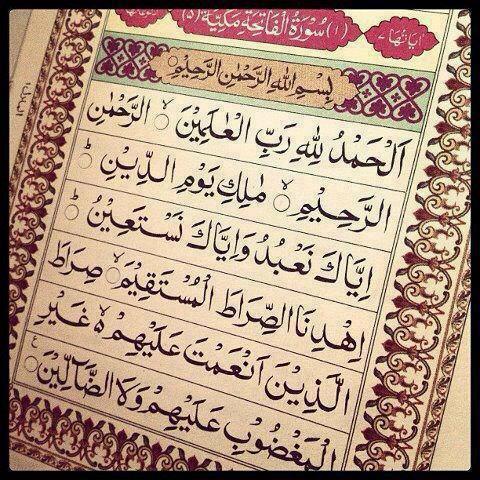 (١) سُوْرَةُ الْفَاتِحَةِ مَكِّيَّةٌ (٥) اٰيَاتُهَا
بِسْمِ اللّٰهِ الرَّحْمٰنِ الرَّحِيْمِ
اَلْحَمْدُ لِلّٰهِ رَبِّ الْعٰلَمِيْنَ ۙ الرَّحْمٰنِ
الرَّحِيْمِ ۙ مٰلِكِ يَوْمِ الدِّيْنِ ؕ
اِيَّاكَ نَعْبُدُ وَاِيَّاكَ نَسْتَعِيْنُ ؕ
اِهْدِنَا الصِّرَاطَ الْمُسْتَقِيْمَ ۙ صِرَاطَ
الَّذِيْنَ اَنْعَمْتَ عَلَيْهِمْ ۙ۬ غَيْرِ
الْمَغْضُوْبِ عَلَيْهِمْ وَلَا الضَّآلِّيْنَ